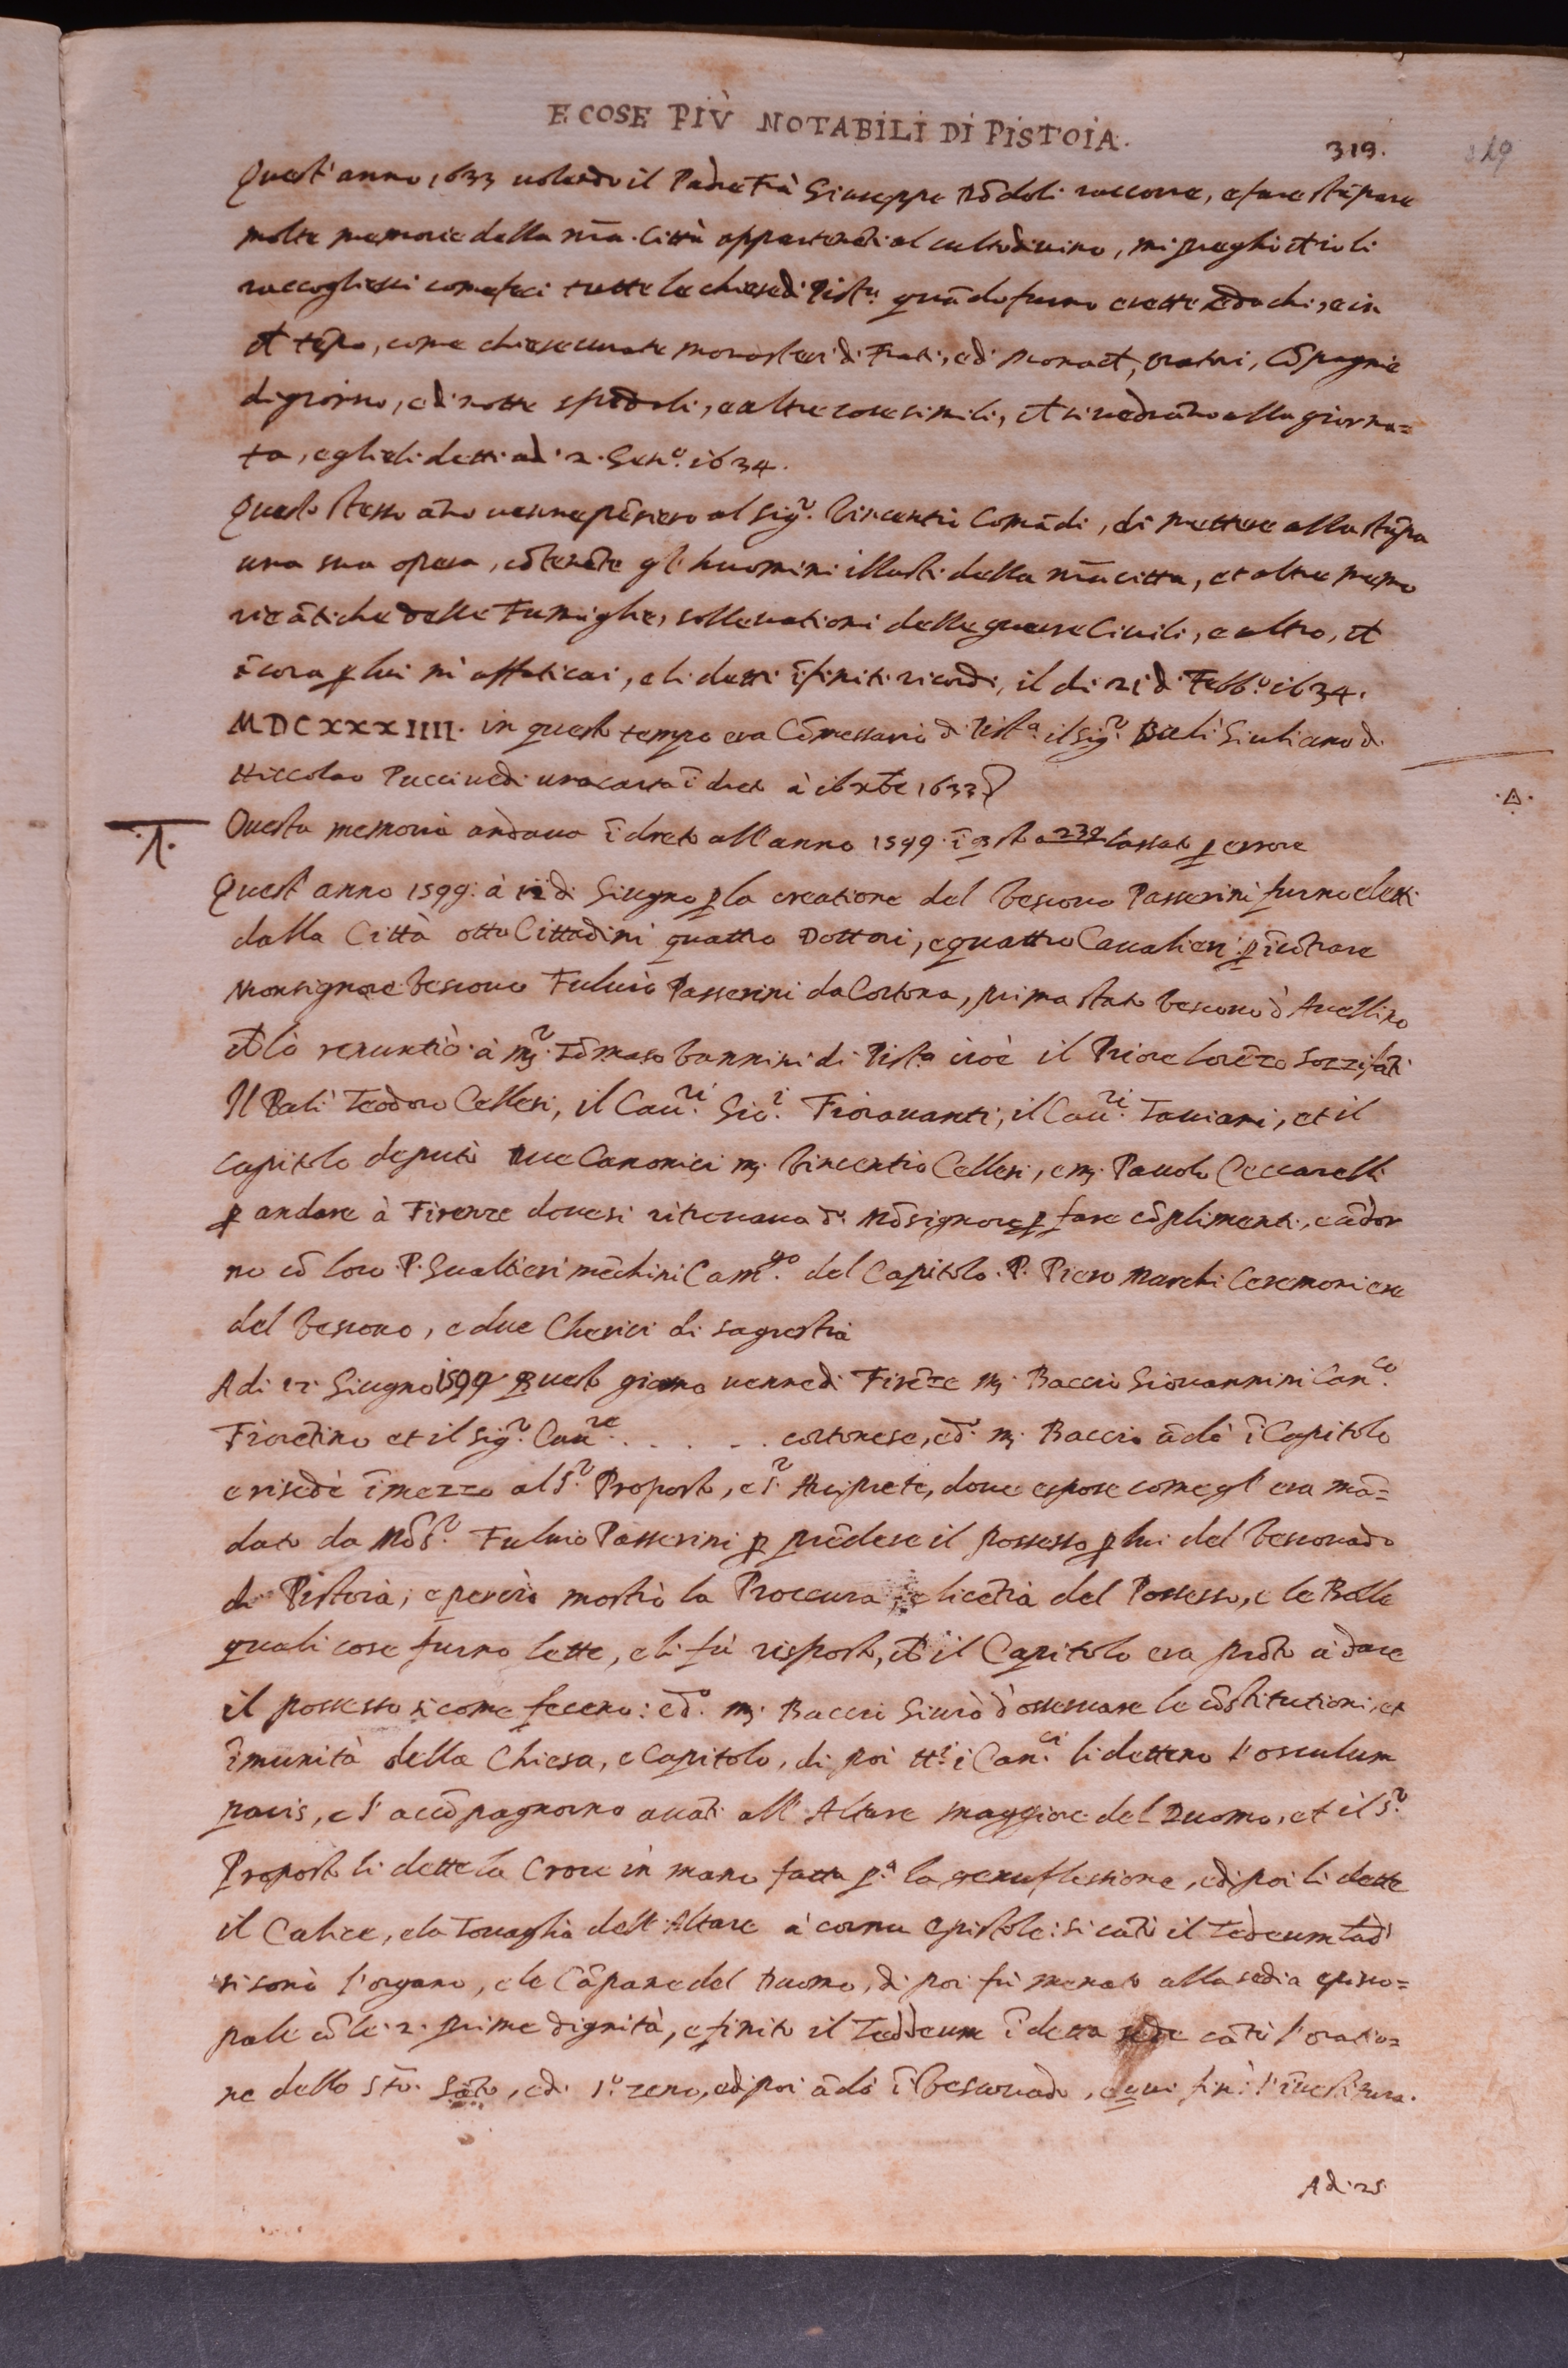 E COSE PIÙ NOTABILI DI PISTOIA.
319.
319
Quest'anno 1633 uolendo il Padre Frà Giuseppe Dōdoli raccorre, e fare stāpare
molte memorie della nrā. Città appartenēti al culto diuino, mi preghò ch io li
raccogliessi come feci tutte le chiese di Pist.ᵃ quādo furno erette e da chi, e in
ch tēpo, come chiese curate monasteri di Frati, e di Monach, oratori, Cōpagnie
di giorno, e di notte spedali, e altre cose simili, ch si uedrāno alla giorna=
ta, e glieli detti adi 2. Gen.º 1634.
Questo stesso āno uenne pēsiero al Sig.ʳ Vincentio Comādi, di mettere alla stāpa
una sua opera, cōtenēte gl'huomini illustri della nrā citta, et altre memo
rie ātiche delle Famiglie, solleuationi delle guerre Ciuili, e altro, et
ācora ꝑ lui mi affaticai, e li detti īfiniti ricordi, il di 21 di Febb.º 1634.
MDCXXXIIII. in questo tempo era Cōmessario di Pist.ᵃ il Sig.ʳ Balì Giuliano di
Niccolao Pucci uedi una carta ī dreto à 16 Xbre 1633
.△.
.Λ.
Questa memoria andaua ī dreto all'anno 1599. ī qsto a 239 lassato ꝑ errore
Quest'anno 1599. à 12 di Giugno ꝑ la creatione del Vescouo Passerini furno eletti
dalla Città otto Cittadini quattro Dottori, e quattro Caualieri ꝑ īcōtrare
Monsignore Vescouo Fuluio Passerini da Cortona, prima stato Vescouo d'Auellino
ch lo renuntiò à m.ʳ Tōmaso Vannini di Pist.ᵃ cioè il Priore Lorēzo Sozzifāti
Il Balì Teodoro Cellesi, il Cau.ʳⁱ Gio.ⁱ Fiorauanti, il Cau.ʳⁱ Tauiani, et il
Capitolo deputò due Canonici m. Vincentio Cellesi, e m. Pauolo Ceccarelli
ꝑ andare à Firenze doue si ritrouaua d.º Mōsignore ꝑ fare cōplimenti, e ādor
no cō loro P. Gualtieri mēchini Cam.ᵍᵒ del Capitolo. P. Piero Marchi Ceremoniere
del Vescouo, e due Cherici di sagrestia
A di 12 Giugno 1599 Questo giorno uenne di Firēze m. Baccio Giouannini Can.ᶜᵒ
Fiorētino et il Sig.ʳ Cau.ʳᵉ . . . . . cortonese, e d.º m. Baccio ādò ī Capitolo
e risedè ī mezzo al S.ʳ Proposto, e S.ʳ Arciprete, doue espose come gl'era mā=
dato da Mōs.ʳ Fuluio Passerini ꝑ prēdere il possesso ꝑ lui del Vescouado
di Pistoia; e perciò mostrò la Proccura, e licētia del Possesso, e le Bolle
quali cose furno lette, e li fù risposto, ch il Capitolo era prōto à dare
il possesso si come fecero: e d.º m. Baccio Giurò d'osseruare le cōstitutioni, et
īmunità della Chiesa, e Capitolo, di poi tt.ⁱ i Can.ᶜⁱ li dettero l'osculum
pacis, e l'accōpagnorno auāti all'Altare maggiore del Duomo, et il S.ʳ
Proposto li dette la Croce in mano fatta p.ᵃ la genuflessione, e di poi li dette
il Calice, e la Touaglia dell'Altare à cornu epistole: si cātò il Tedeum laud.
si sonò l'organo, e le Cāpane del Duomo, di poi fù menato alla sedia episco=
pale cō le 2. prime dignità, e finito il Teddeum ī detta sede cātò l'oratio=
ne dello Sto. Sāto, e di S.º zeno, e di poi ādò ī Vescouado, e qui finì l'īuestitura.
Adi 25.